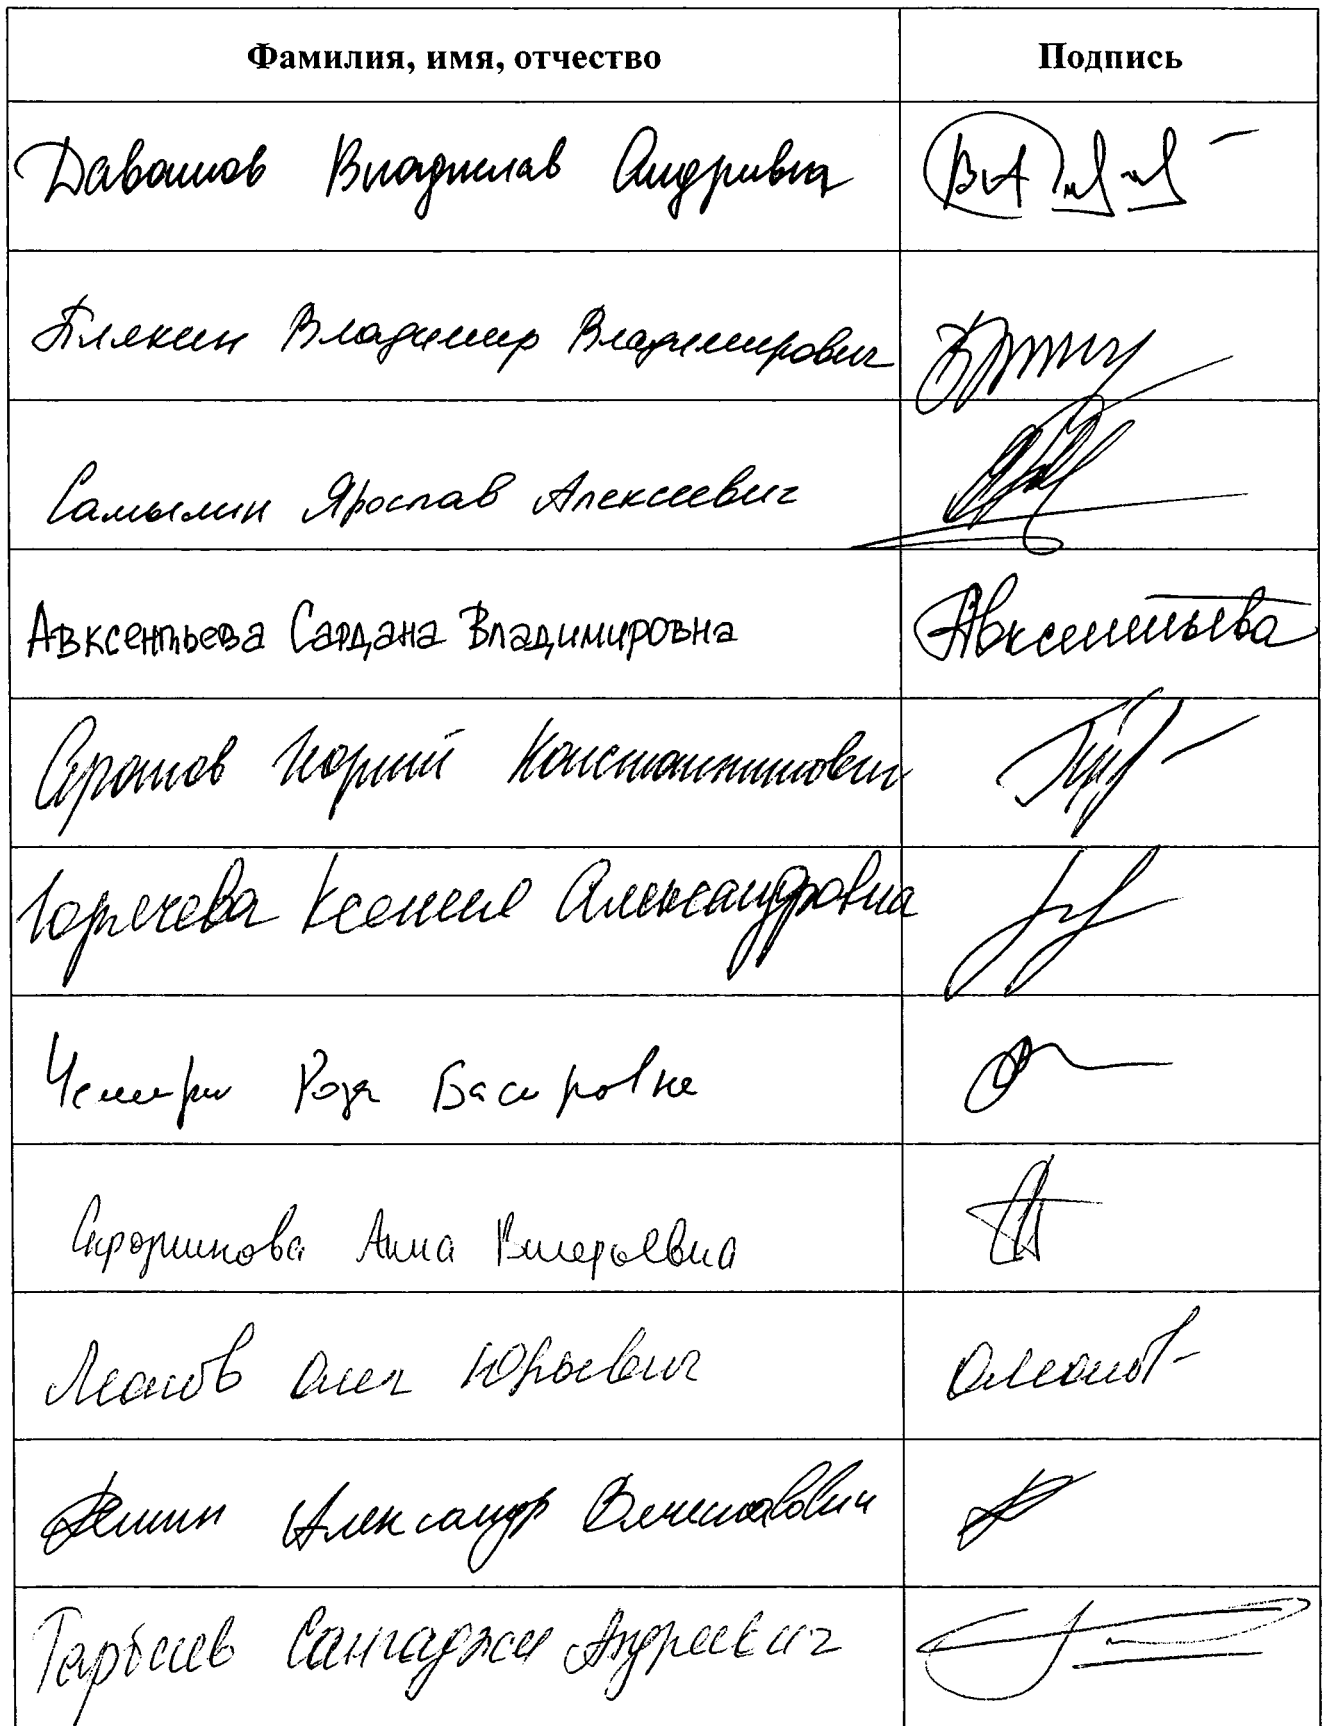 Фамилия, имя, отчество Подпись
Даванков Владислав Андреевич
Плякин Владимир Владимирович
Самылин Ярослав Алексеевич
Авксентьева Сардана Владимировна Авксентьева
Арапов Георгий Константинович
Горячева Ксения Александровна
Чемерис Роза Басировна
Скрозникова Анна Валерьевна
Леонов Олег Юрьевич ОЛеонов
Дёмин Александр Вячеславович
Тарбаев Сангаджи Андреевич